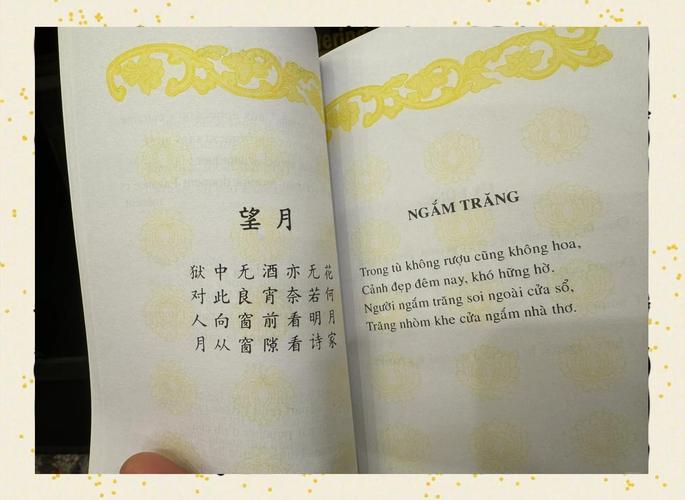 望月
狱中无酒亦无花
对此良宵奈若何
人向窗前看明月
月从窗隙看诗家
NGẮM TRĂNG
Trong tù không rượu cũng không hoa,
Cảnh đẹp đêm nay, khó hững hờ.
Người ngắm trăng soi ngoài cửa sổ,
Trăng nhòm khe cửa ngắm nhà thơ.